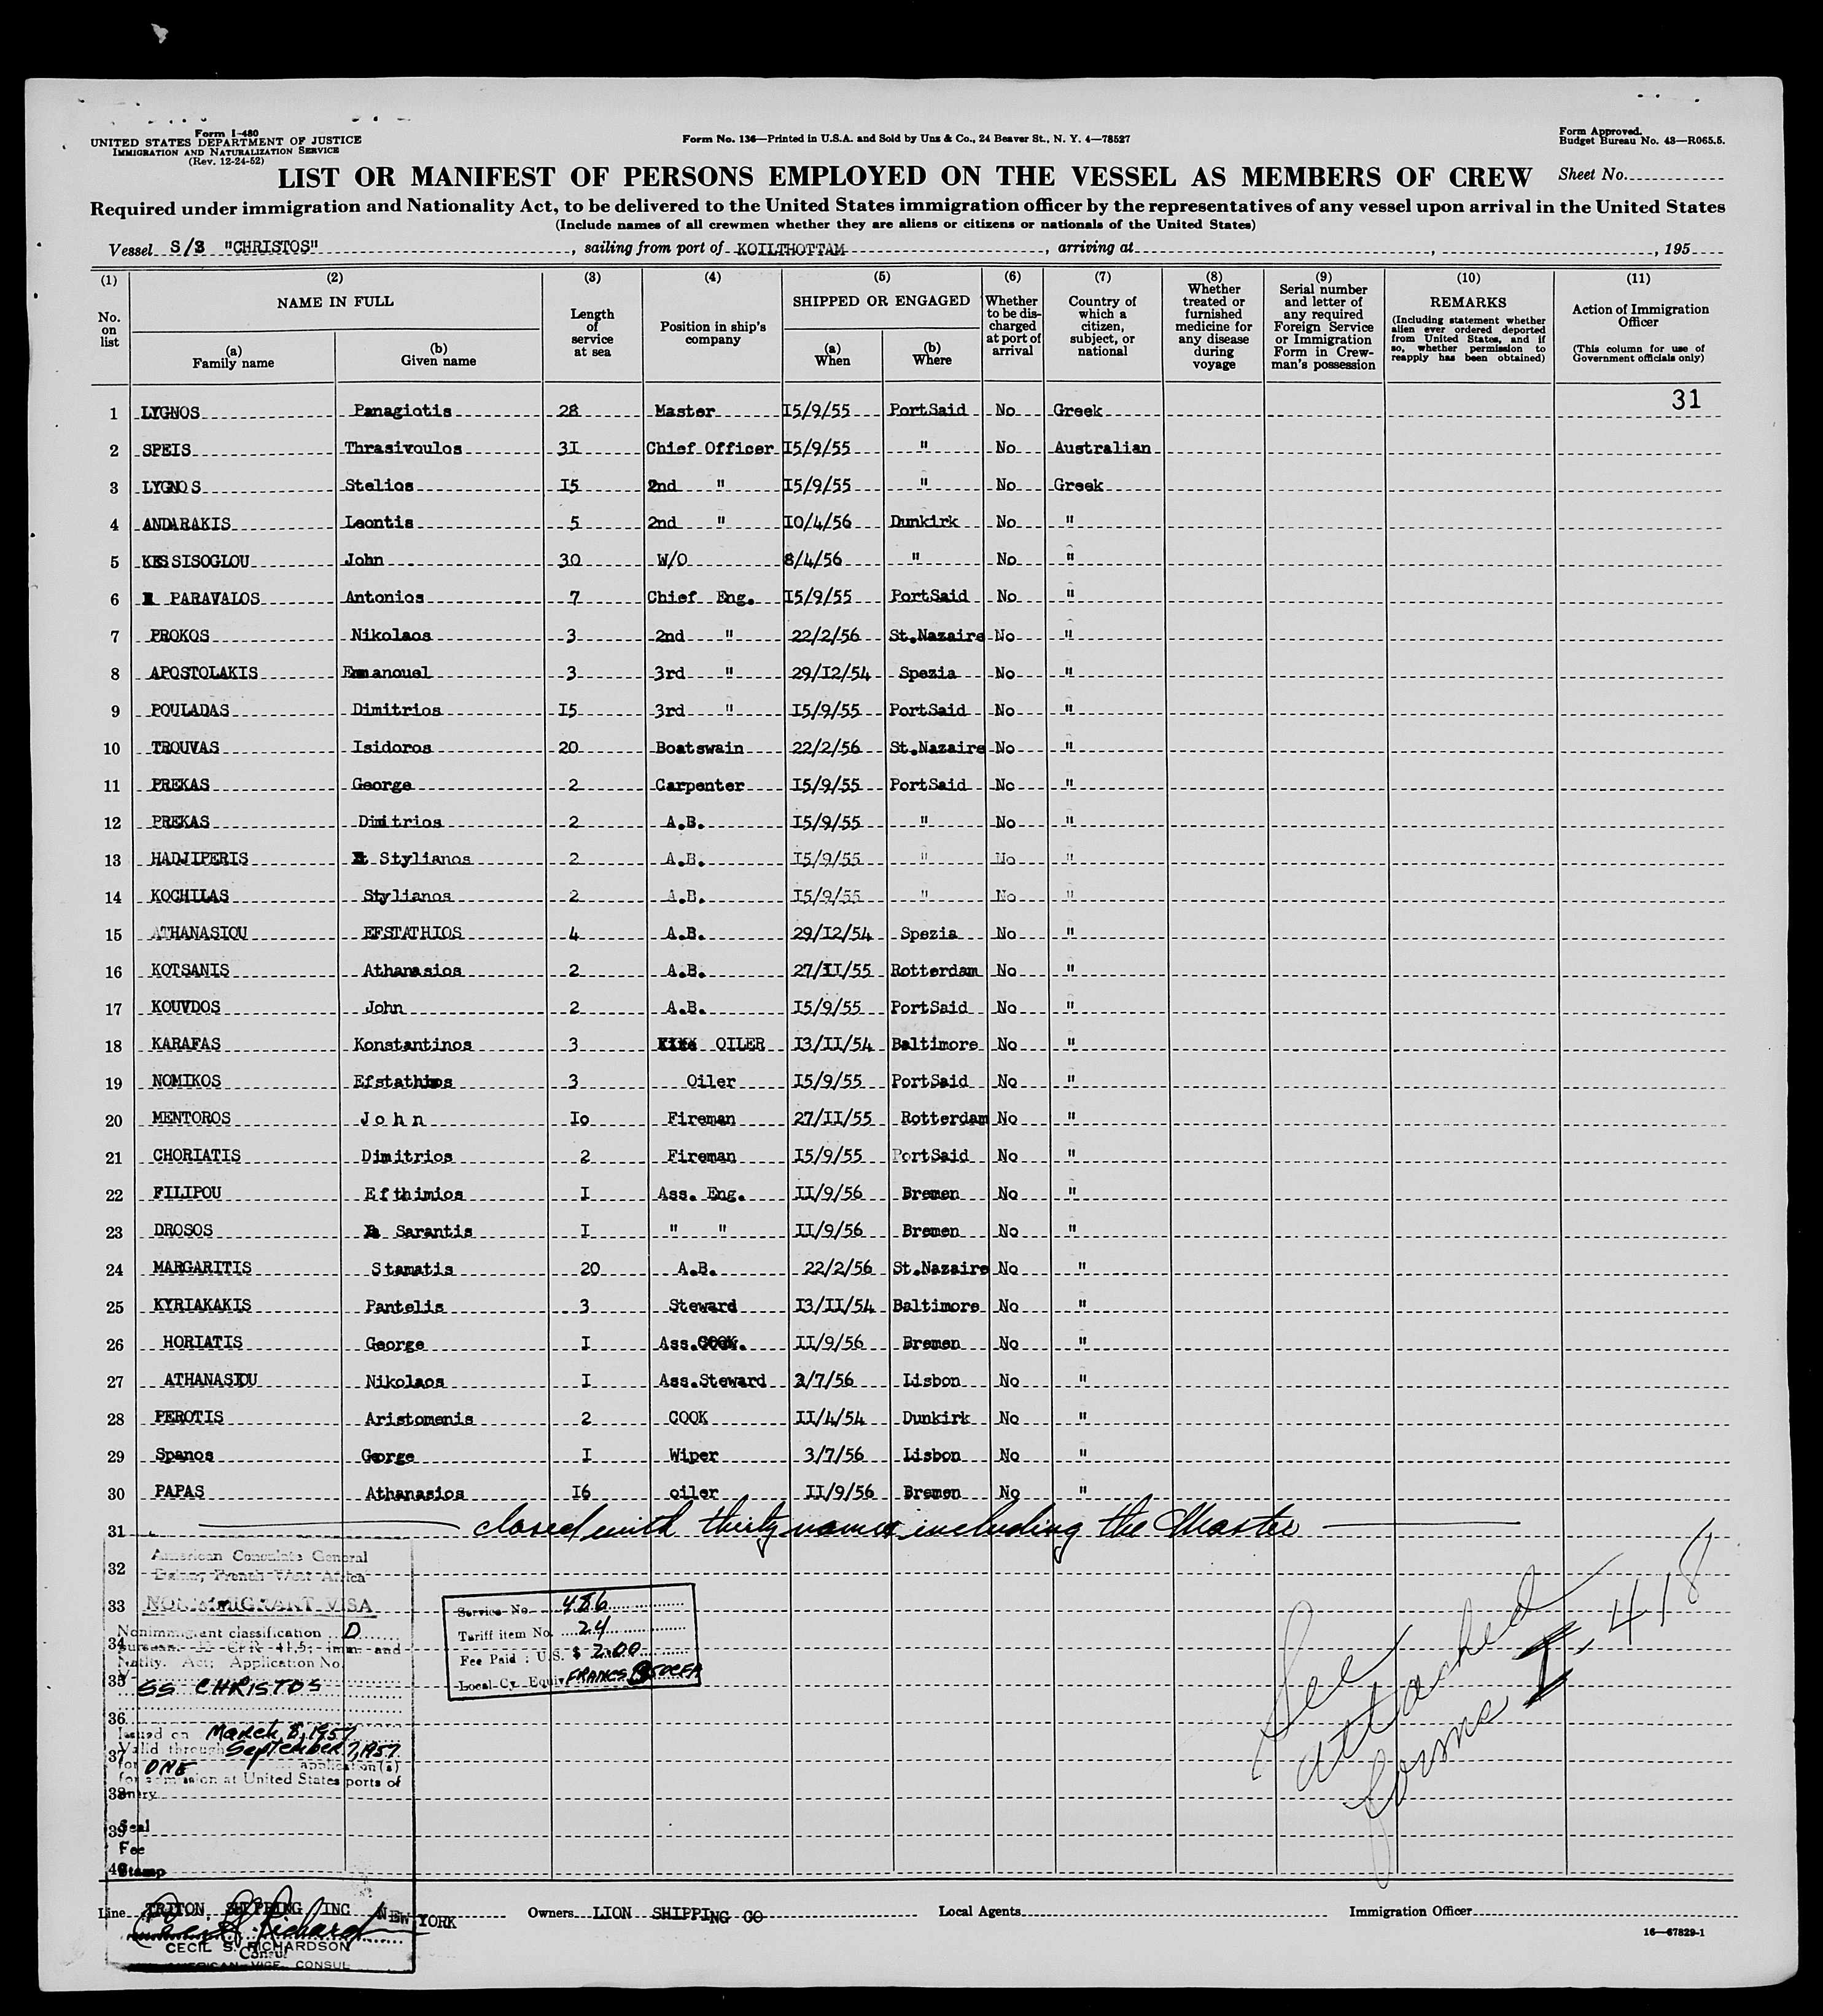 Form I-480
UNITED STATES DEPARTMENT OF JUSTICE
IMMIGRATION AND NATURALIZATION SERVICE
(Rev. 12-24-52)
Form No. 136—Printed in U.S.A. and Sold by Unz & Co., 24 Beaver St., N. Y. 4—78527
Form Approved.
Budget Bureau No. 43—R065.5.
LIST OR MANIFEST OF PERSONS EMPLOYED ON THE VESSEL AS MEMBERS OF CREW
Sheet No.
Required under immigration and Nationality Act, to be delivered to the United States immigration officer by the representatives of any vessel upon arrival in the United States
(Include names of all crewmen whether they are aliens or citizens or nationals of the United States)
Vessel S/S "CHRISTOS", sailing from port of KOILTHOTTAM, arriving at , , 195
(1) No. on list
(2) NAME IN FULL
(a) Family name
(b) Given name
(3) Length of service at sea
(4) Position in ship's company
(5) SHIPPED OR ENGAGED
(a) When
(b) Where
(6) Whether to be discharged at port of arrival
(7) Country of which a citizen, subject, or national
(8) Whether treated or furnished medicine for any disease during voyage
(9) Serial number and letter of any required Foreign Service or Immigration Form in Crewman's possession
(10) REMARKS (Including statement whether alien ever ordered deported from United States, and if so, whether permission to reapply has been obtained)
(11) Action of Immigration Officer (This column for use of Government officials only)
31
1 LYGNOS Panagiotis 28 Master I5/9/55 PortSaid No Greek
2 SPEIS Thrasivoulos 3I Chief Officer I5/9/55 " No Australian
3 LYGNOS Stelios I5 2nd " I5/9/55 " No Greek
4 ANDARAKIS Leontis 5 2nd " I0/4/56 Dunkirk No "
5 KESSISOGLOU John 30 W/O 8/4/56 " No "
6 PARAVALOS Antonios 7 Chief Eng. I5/9/55 PortSaid No "
7 PROKOS Nikolaos 3 2nd " 22/2/56 St.Nazaire No "
8 APOSTOLAKIS Emmanouel 3 3rd " 29/I2/54 Spezia No "
9 POULADAS Dimitrios I5 3rd " I5/9/55 PortSaid No "
10 TROUVAS Isidoros 20 Boatswain 22/2/56 St.Nazaire No "
11 PREKAS George 2 Carpenter I5/9/55 PortSaid No "
12 PREKAS Dimitrios 2 A.B. I5/9/55 " No "
13 HADJIPERIS Stylianos 2 A.B. I5/9/55 " No "
14 KOCHILAS Stylianos 2 A.B. I5/9/55 " No "
15 ATHANASIOU EFSTATHIOS 4 A.B. 29/I2/54 Spezia No "
16 KOTSANIS Athanasios 2 A.B. 27/II/55 Rotterdam No "
17 KOUVDOS John 2 A.B. I5/9/55 PortSaid No "
18 KARAFAS Konstantinos 3 OILER I3/II/54 Baltimore No "
19 NOMIKOS Efstathios 3 Oiler I5/9/55 PortSaid No "
20 MENTOROS John Io Fireman 27/II/55 Rotterdam No "
21 CHORIATIS Dimitrios 2 Fireman I5/9/55 PortSaid No "
22 FILIPOU Efthimios I Ass. Eng. II/9/56 Bremen No "
23 DROSOS Sarantis I " " II/9/56 Bremen No "
24 MARGARITIS Stamatis 20 A.B. 22/2/56 St.Nazaire No "
25 KYRIAKAKIS Pantelis 3 Steward I3/II/54 Baltimore No "
26 HORIATIS George I Ass.COOK. II/9/56 Bremen No "
27 ATHANASIOU Nikolaos I Ass.Steward 3/7/56 Lisbon No "
28 PEROTIS Aristomenis 2 COOK II/4/54 Dunkirk No "
29 Spanos George I Wiper 3/7/56 Lisbon No "
30 PAPAS Athanasios I6 oiler II/9/56 Bremen No "
31 closed with thirty names including the Master
32
33
34
35
36
37
38
39
40
American Consulate General
Dakar, French West Africa
NONIMMIGRANT VISA
Nonimmigrant classification D
pursuant 22 CFR 41.5; Imm. and
Natlty. Act; Application No.
V-
SS CHRISTOS
Issued on March 8, 1957
Valid through September 7, 1957
for ONE application(s)
for admission at United States ports of
entry.
Seal
Fee
Stamp
Service No. 486
Tariff item No. 24
Fee Paid : U.S. $ 2.00
Local Cy. Equiv. FRANCS 350CFA
See
attached
forms I-418
Line TRITON SHIPPING INC NEW YORK
Owners LION SHIPPING CO
Local Agents
Immigration Officer
CECIL S. RICHARDSON
Consul
AMERICAN VICE CONSUL
16—67829-1